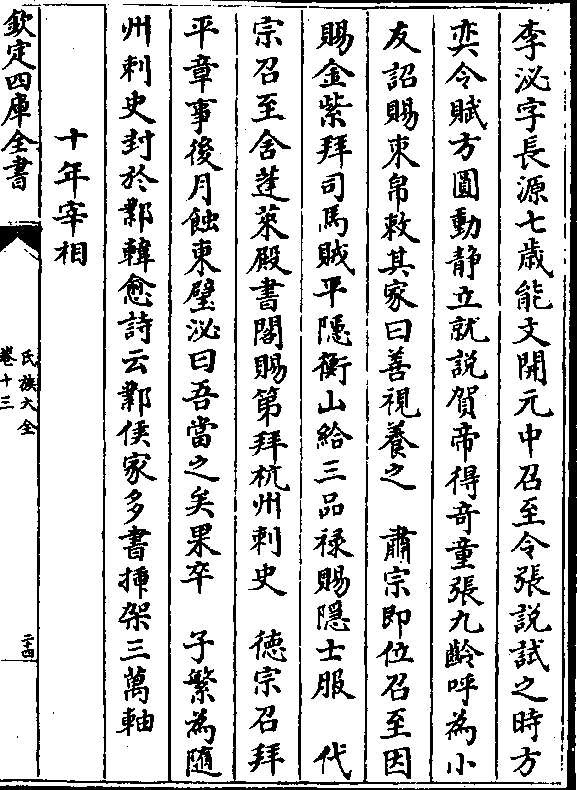 李泌字長源七歳能文開元中召至令張說試之時方
奕令賦方圓動静立就說賀帝得奇童張九齡呼為小
友詔賜束帛敕其家曰善視養之　肅宗即位召至因
賜金紫拜司馬賊平隠衡山給三品禄賜隠士服　代
宗召至舍蓬萊殿書閣賜第拜杭州刺史　德宗召拜
平章事後月蝕東壁泌曰吾當之矣果卒　子繁為隨
州刺史封於鄴韓愈詩云鄴侯家多書揷架三萬軸
十年宰相
欽定四庫全書
氏族大全
卷十三
二十四